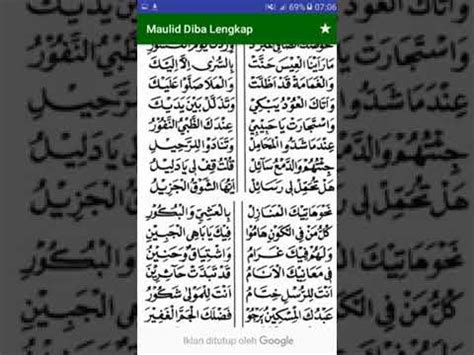 69% 07:06
Maulid Diba Lengkap
مَا رَاَيْنَا الْعِيْسَ حَنَّتْ بِالسُّرٰى اِلَّا اِلَيْكَ
وَالْغَمَامَهْ قَدْ اَظَلَّتْ وَالْمَلَا صَلُّوْا عَلَيْكَ
وَاَتَاكَ الْعُوْدُ يَبْكِيْ وَتَذَلَّلْ بَيْنَ يَدَيْكَ
وَاسْتَجَارَتْ يَاحَبِيْبِيْ عِنْدَكَ الظَّبْيُ النُّفُوْرُ
عِنْدَمَا شَدُّوا الْمَحَامِلْ وَتَنَادَوْا لِلرَّحِيْلِ
جِئْتُهُمْ وَالدَّمْعُ سَائِلْ قُلْتُ قِفْ لِيْ يَادَلِيْلُ
هَلْ تُحَمِّلْ لِيْ رَسَائِلْ اَيُّهَا الشَّوْقُ الْجَزِيْلُ
نَحْوَهَاتِيْكَ الْمَنَازِلْ بِالْعَشِيِّ وَالْبُكُوْرِ
كُلُّ مَنْ فِي الْكَوْنِ هَامُوْا فِيْكَ يَابَاهِي الْجَبِيْنِ
وَلَهُمْ فِيْكَ غَرَامُ وَاشْتِيَاقٌ وَحَنِيْنُ
فِيْ مَعَانِيْكَ الْاَنَامُ قَدْ تَبَدَّتْ حَائِرِيْنَ
اَنْتَ لِلرُّسُلِ خِتَامُ اَنْتَ لِلْمَوْلٰى شَكُوْرُ
عَبْدُكَ الْمِسْكِيْنُ يَرْجُوْ فَضْلَكَ الْجَمَّ الْغَفِيْرَ
Iklan ditutup oleh Google